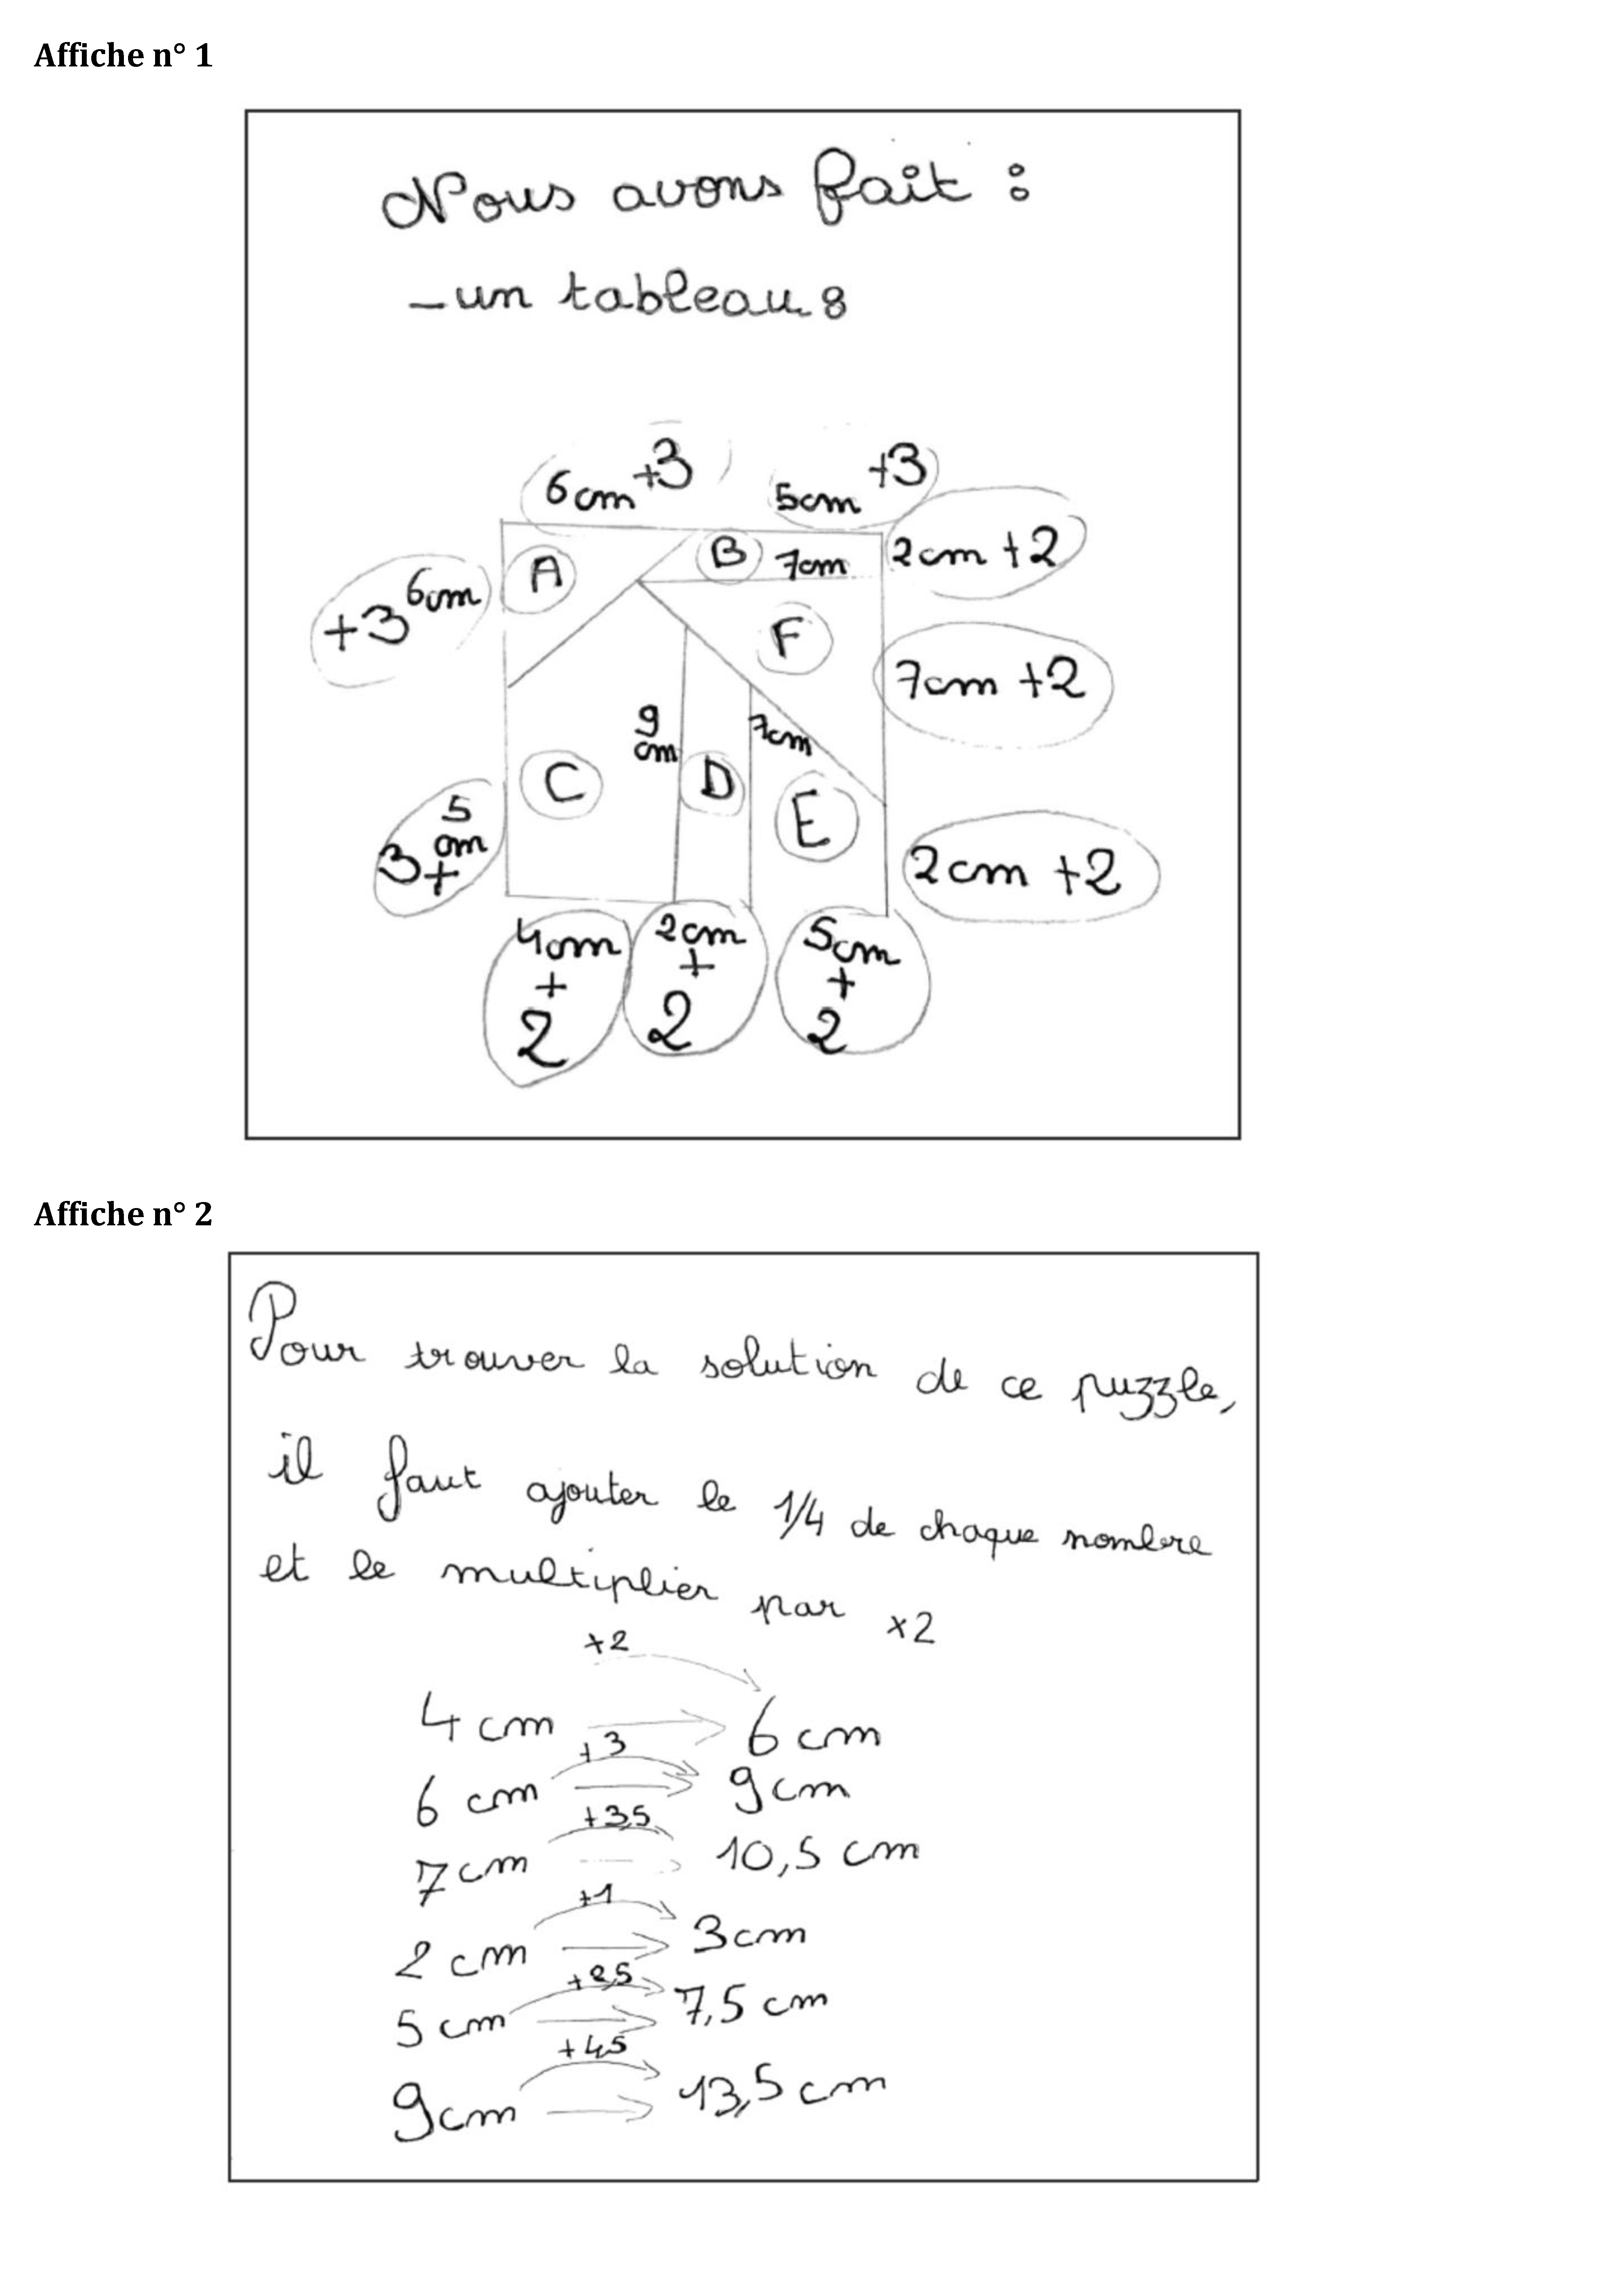 Affiche n° 1
Nous avons fait :
- un tableau 8
6cm +3
5cm +3
2cm +2
A
B
7cm
+3 6cm
F
7cm +2
9
cm
7cm
C
D
E
5
cm
3+
2cm +2
4cm
+
2
2cm
+
2
5cm
+
2
Affiche n° 2
Pour trouver la solution de ce puzzle,
il faut ajouter le 1/4 de chaque nombre
et le multiplier par ×2
+2
4 cm 6 cm
+3
6 cm 9cm
+3,5
7cm 10,5 cm
+1
2 cm 3cm
+2,5
5 cm 7,5 cm
+4,5
9cm 13,5 cm